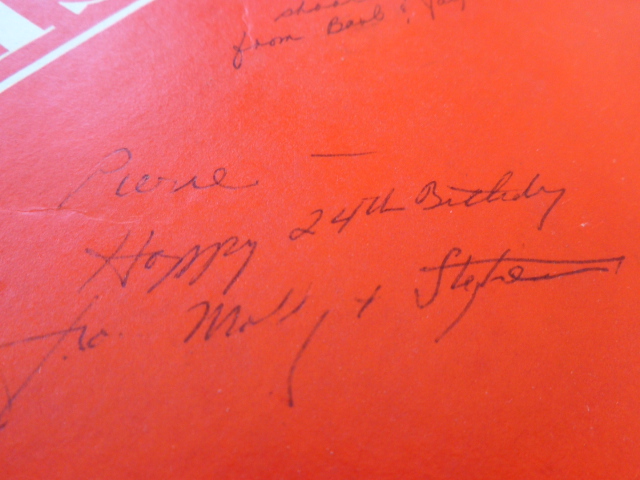 from Barb &
Pierre —
Happy 24th Birthday
fro. Molly & Stephen